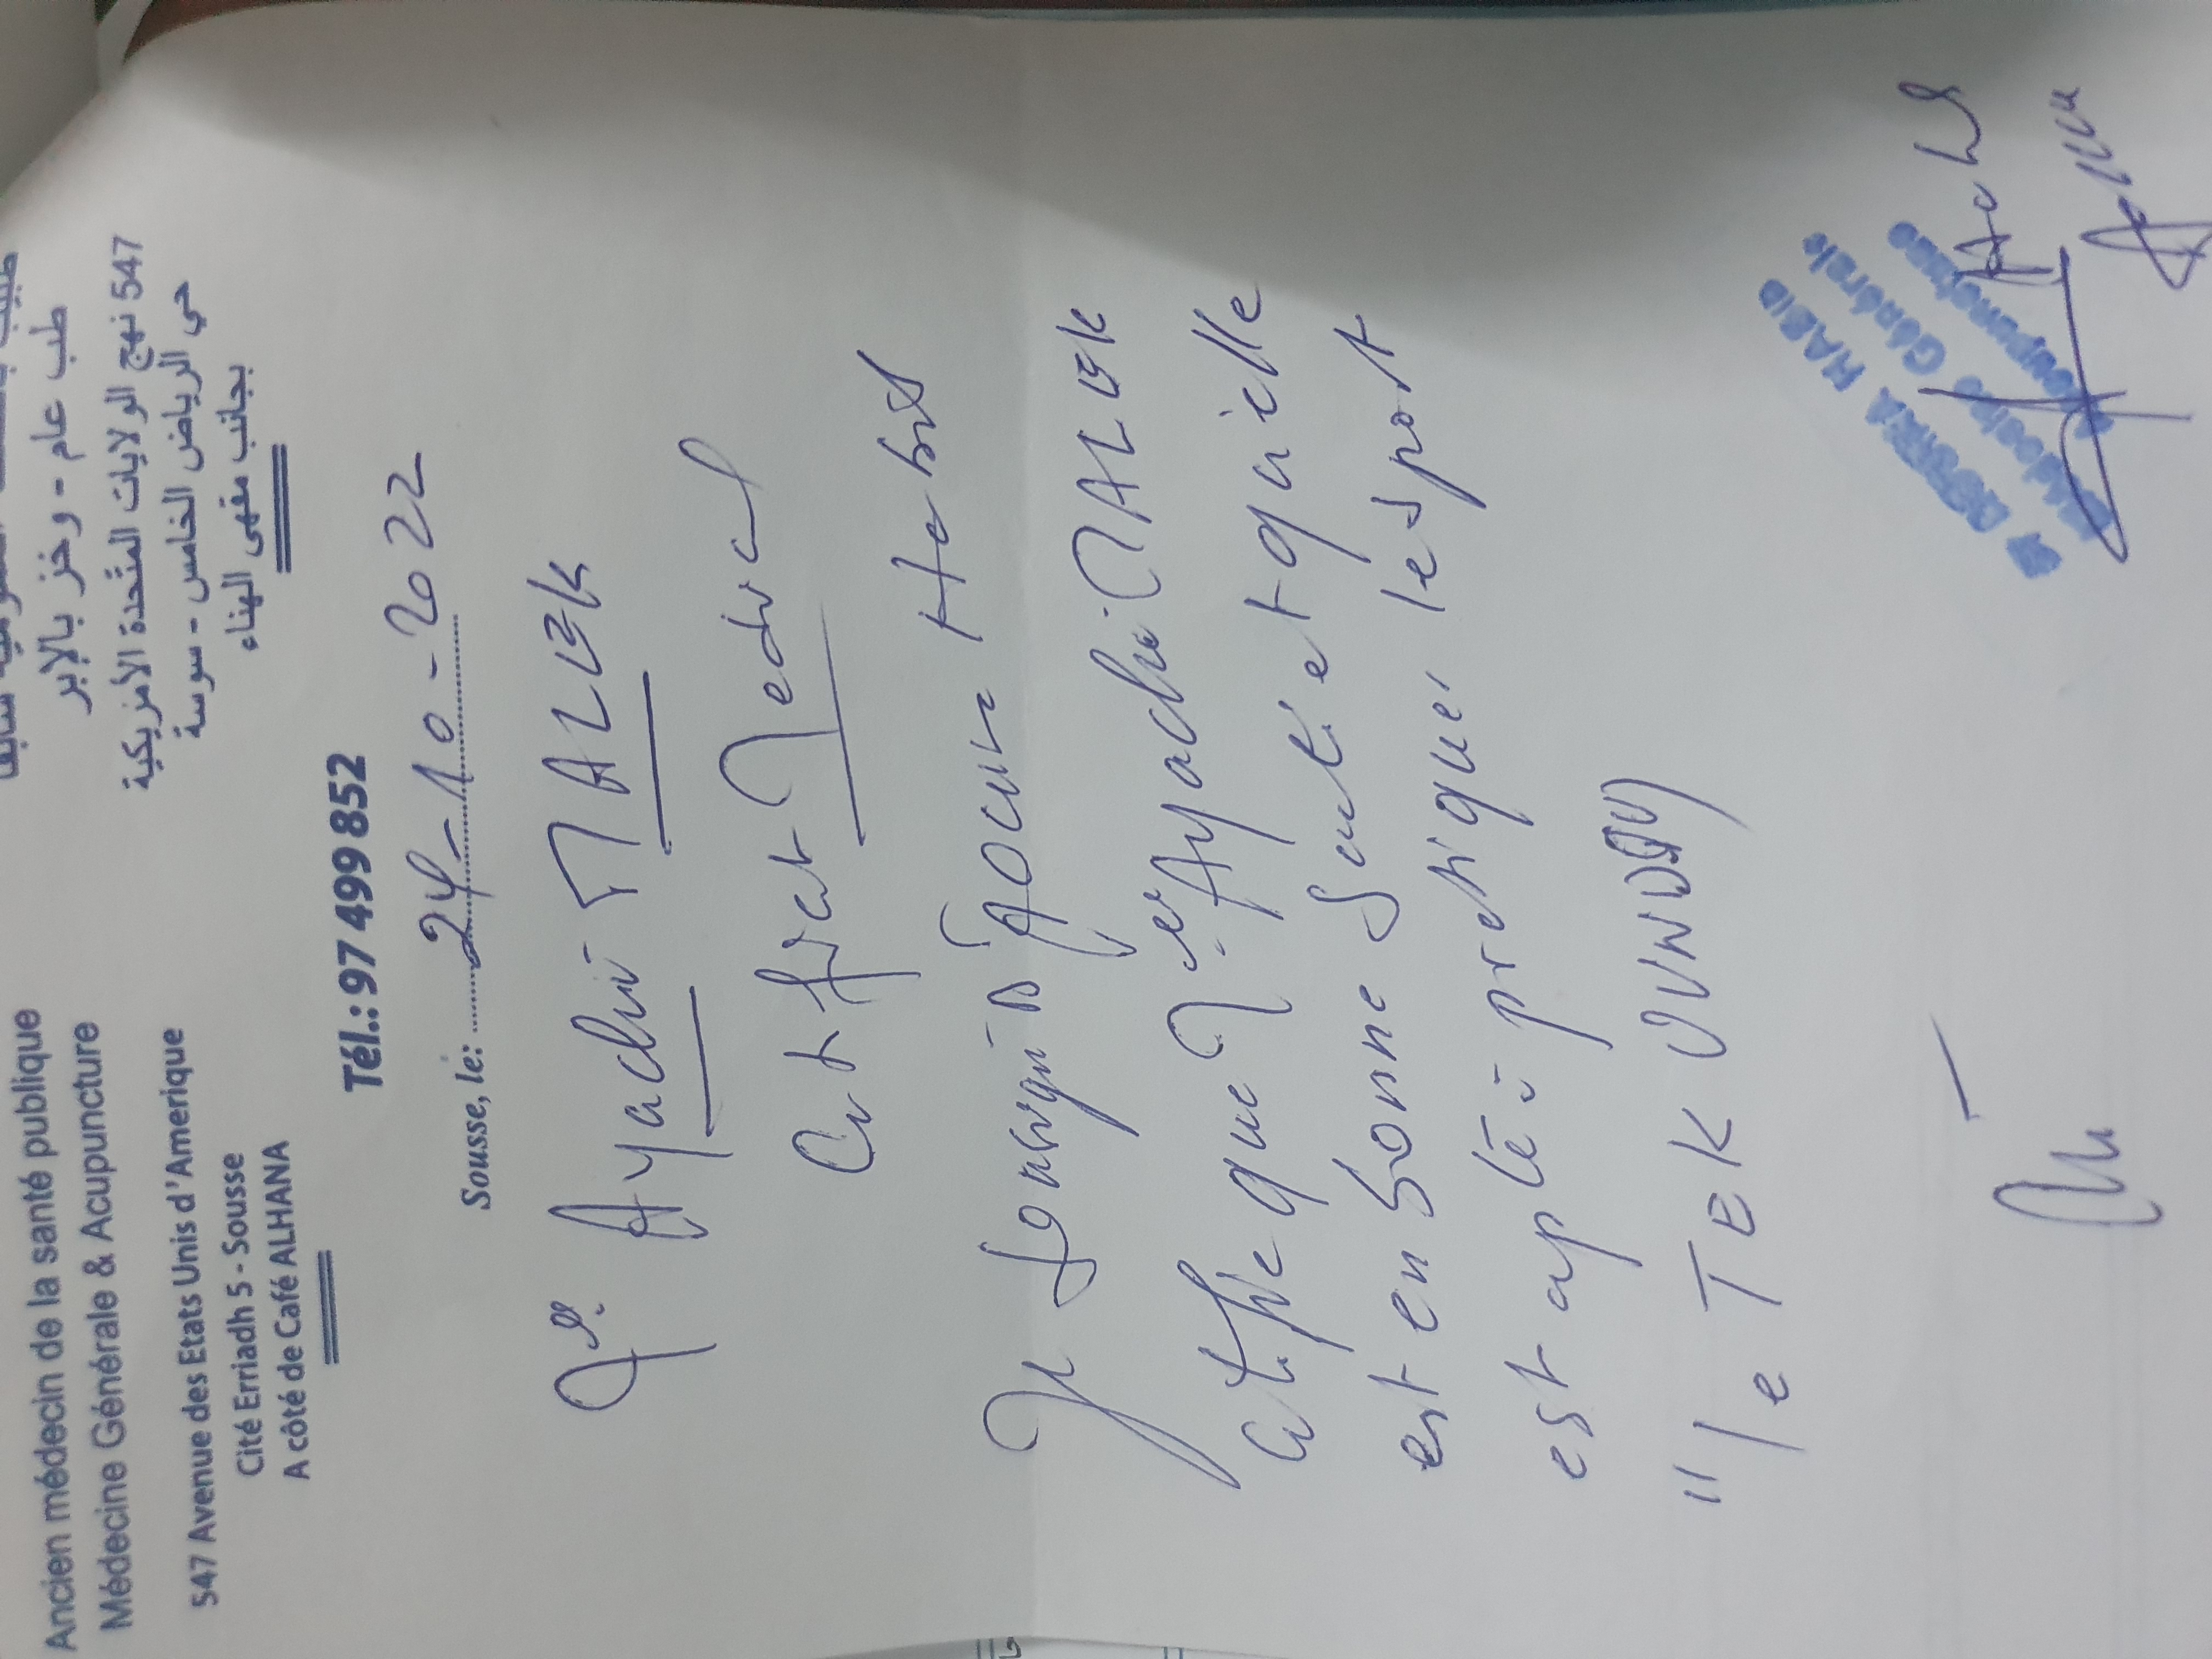 Ancien médecin de la santé publique
Médecine Générale & Acupuncture
547 Avenue des Etats Unis d'Amerique
Cité Erriadh 5 - Sousse
A côté de Café ALHANA
طب عام - وخز بالإبر
547 نهج الولايات المتحدة الأمريكية
حي الرياض الخامس - سوسة
بجانب مقهى الهناء
Tél.: 97 499 852
Sousse, le: 24-10-2022
Ayachi MALEK
Certificat Medical
Je soussigné Habib
certifie que Ayachi MALEK
est en bonne Santé et qu'elle
est apte à pratiquer le sport
"le TEKOUNDOU
HABIB
Médecine Générale
Acupuncture